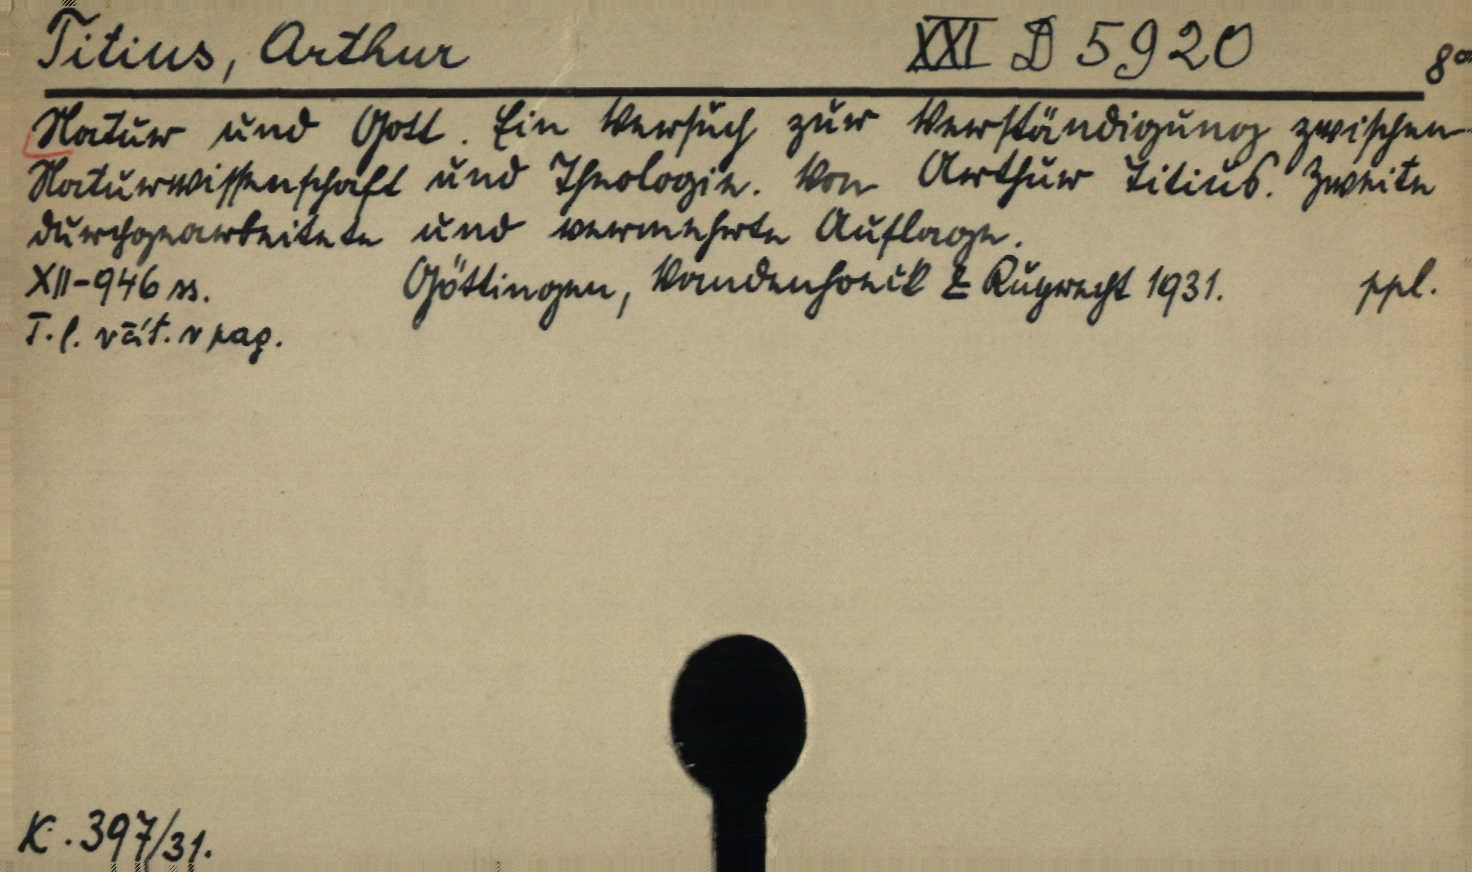 Titius, Arthur XXI D 5920 8°
Natur und Gott. Ein Versuch zur Verständigung zwischen
Naturwissenschaft und Theologie. Von Arthur Titius. Zweite
durchgearbeitete und vermehrte Auflage.
XII-946 ss. Göttingen, Vandenhoeck & Ruprecht 1931. ppl.
T. l. včít. v pag.
K. 397/31.